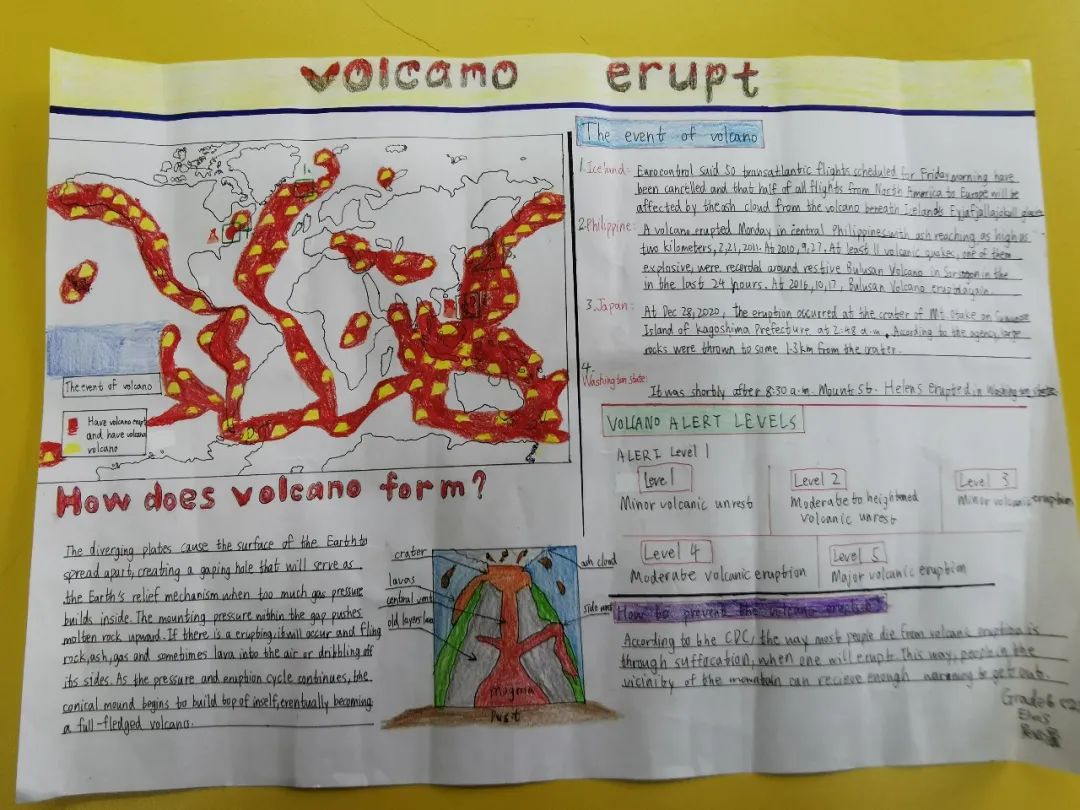 volcano erupt
The event of volcano
1. Iceland: Eurocontrol said so transatlantic flights scheduled for Friday morning have
been cancelled and that half of all flights from North America to Europe will be
affected by the ash cloud from the volcano beneath Icelands Eyjafjallajokull
2. Philippine: A volcano erupted Monday in central Philippines with ash reaching as high as
two kilometers, 2,21,2011. At 2010, 9,27. At least 11 volcanic quakes, one of them
explosive, were recorded around restive Bulusan Volcano in Sorsogon in the
in the last 24 hours. At 2016,10,17, Bulusan Volcano erupted again.
3. Japan: At Dec 28, 2020, The eruption occurred at the crater of Mt Otake on
Island of kagoshima Prefecture at 2:48 a.m. According to the agency, large
rocks were thrown to some 1.3 km from the crater.
4.
Washington state: It was shortly after 8:30 a.m. Mount St. Helens erupted in Washington state
The event of volcano
Have volcano erupt
and have volcano
volcano
VOLCANO ALERT LEVELS
ALERT Level 1
Level
Minor volcanic unrest
Level 2
Moderate to heightened
volcanic unrest
Level 3
Minor volcanic eruption
Level 4
Moderate volcanic eruption
Level 5
Major volcanic eruption
How does volcano form?
The diverging plates cause the surface of the Earth to
spread apart, creating a gaping hole that will serve as
the Earth's relief mechanism when too much gas pressure
builds inside. The mounting pressure within the gap pushes
molten rock upward. If there is a erupting, it will occur and fling
rock, ash, gas and sometimes lava into the air or dribbling off
its sides. As the pressure and eruption cycle continues, the
conical mound begins to build top of itself, eventually becoming
a full-fledged volcano.
crater
lavas
central vent
old layers
ash cloud
side vent
magma
How to prevent the volcano
According to the CRC, the way most people die from volcanic eruptions is
through suffocation, when one will erupt. This way, people in the
vicinity of the mountain can recieve enough warning to get out.
Grade6
Elias